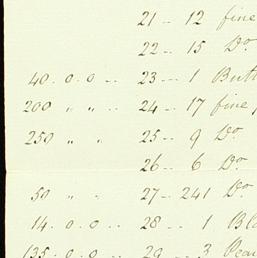 21 .. 12 fine
22 .. 15 Do
40 . 0 . 0 .. 23 ... 1
200 " " .. 24 .. 17 fine
250 " " 25 .. 9 Do
26 .. 6 Do
50 " " 27 .. 241 Do
14 . 0 . 0 .. 28 .. 1 Bla
135 . 0 . 0 .. 29 ... 3 Pear